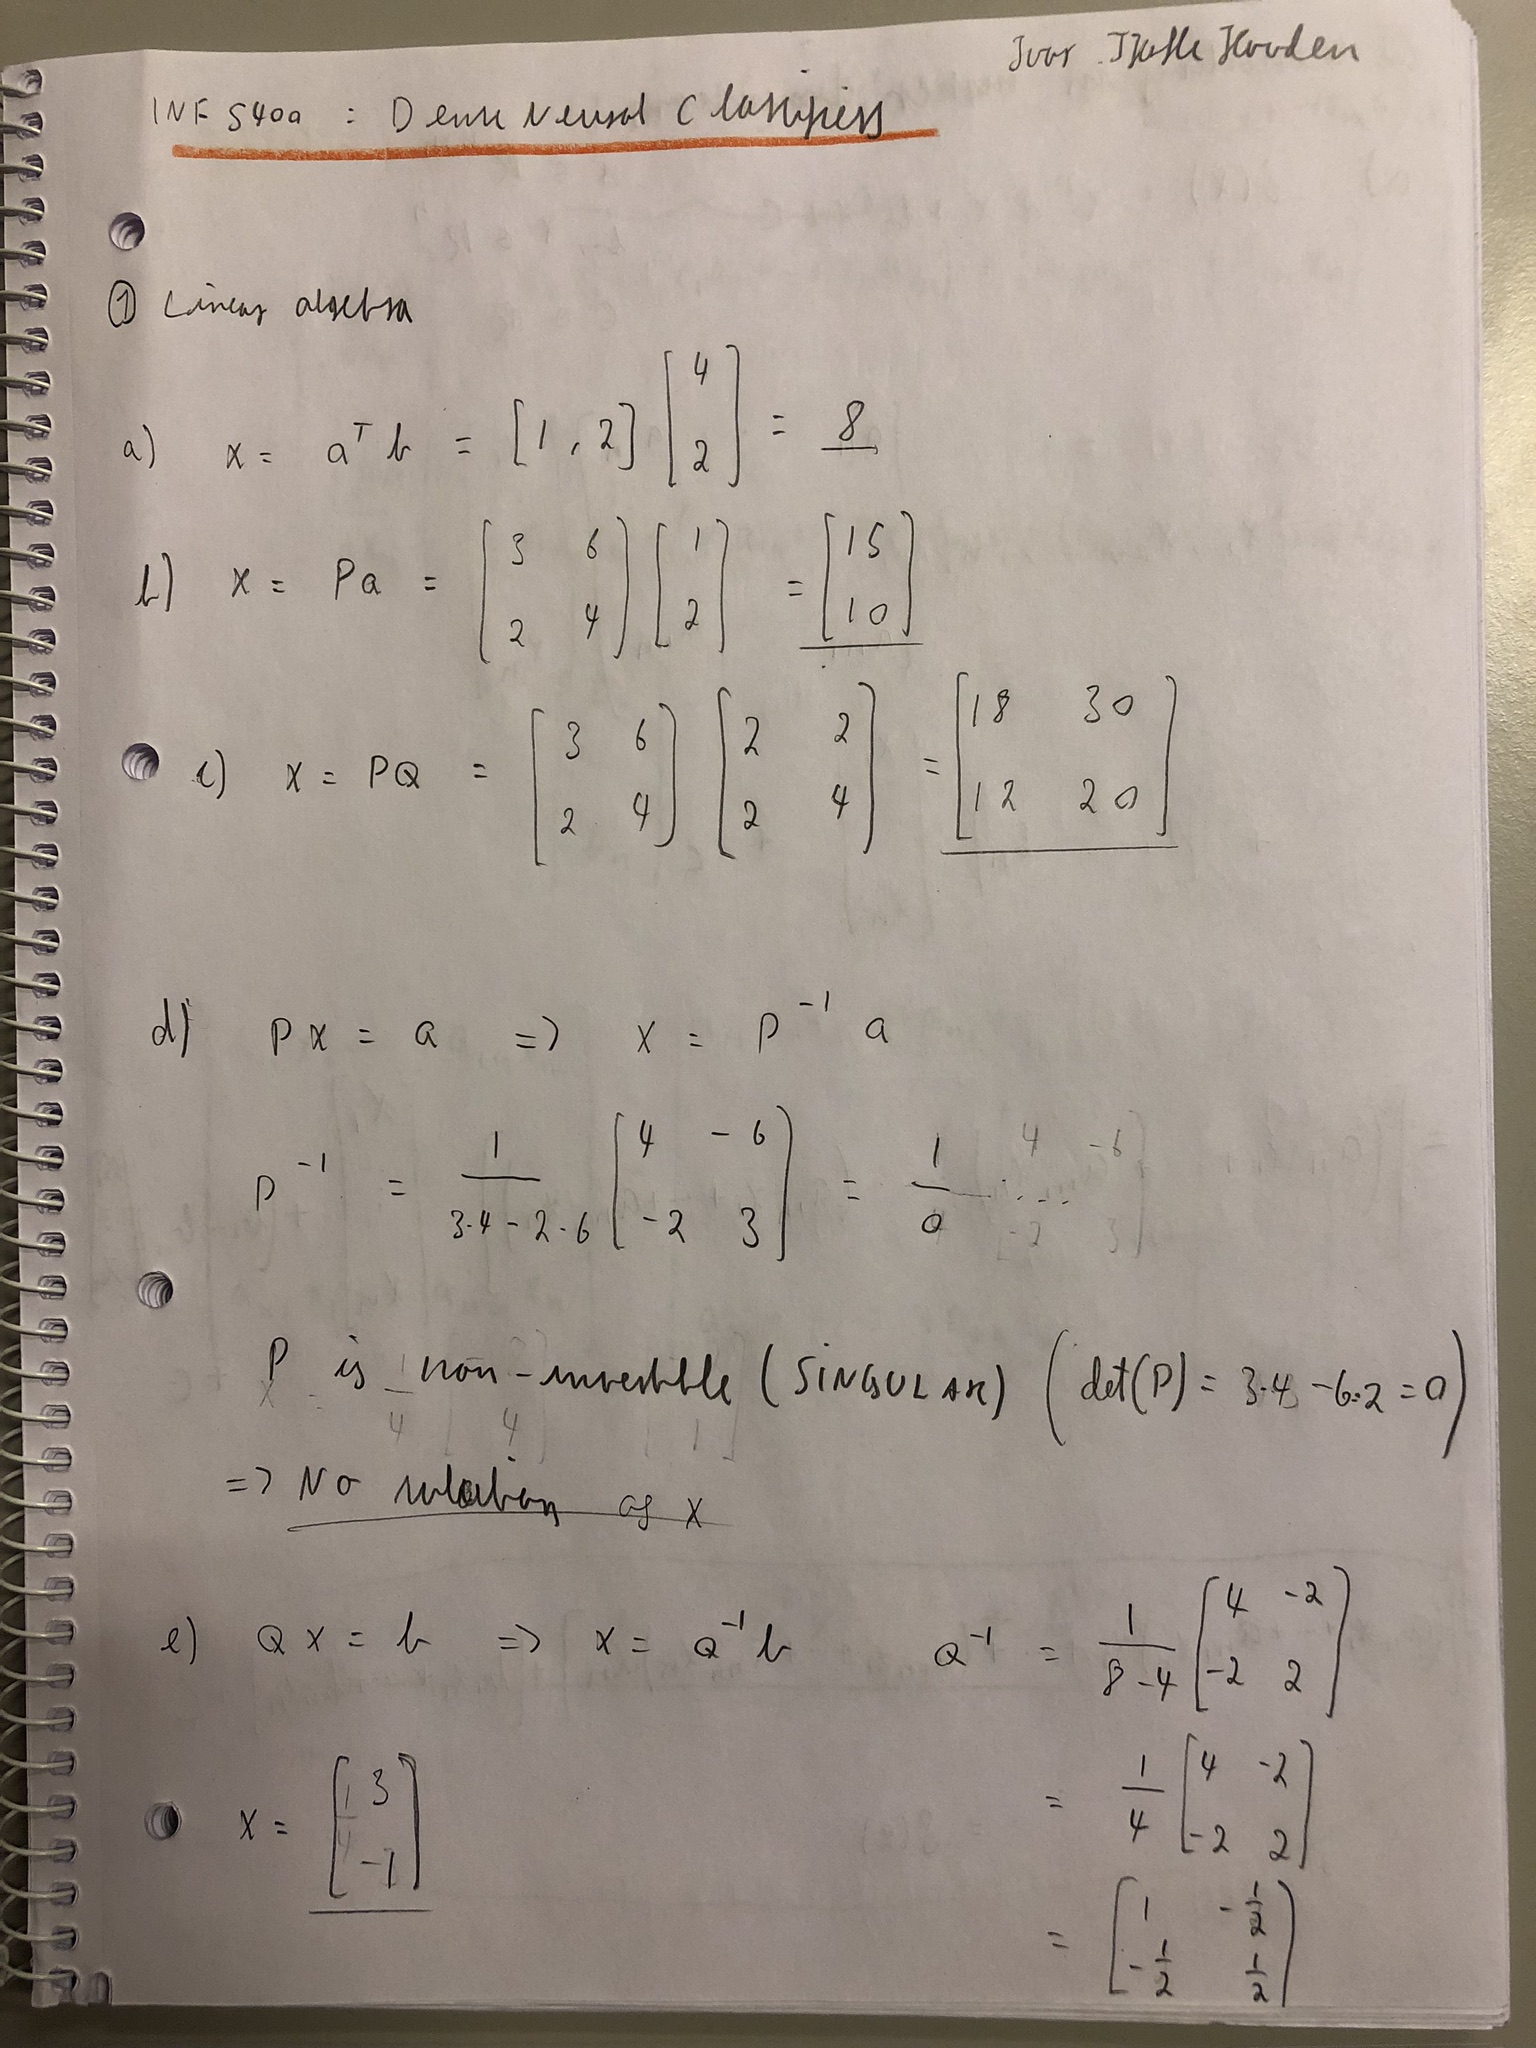 INF 5400 : Dense Neural Classifiers
① Linear algebra
a) x = aᵀ b = [1 , 2] [4 2] = 8
b) x = Pa = [3 6 2 4] [1 2] = [15 10]
c) x = PQ = [3 6 2 4] [2 2 2 4] = [18 30 12 20]
d) Px = a => x = P⁻¹ a
P⁻¹ = 1/(3·4 - 2·6) [4 -6 -2 3] = 1/0 ....
P is non-invertible (SINGULAR) (det(P) = 3·4 - 6·2 = 0)
=> No solution of x
e) Qx = b => x = Q⁻¹ b Q⁻¹ = 1/(8-4) [4 -2 -2 2]
= 1/4 [4 -2 -2 2]
x = [3 -1]
= [1 -1/2 -1/2 1/2]